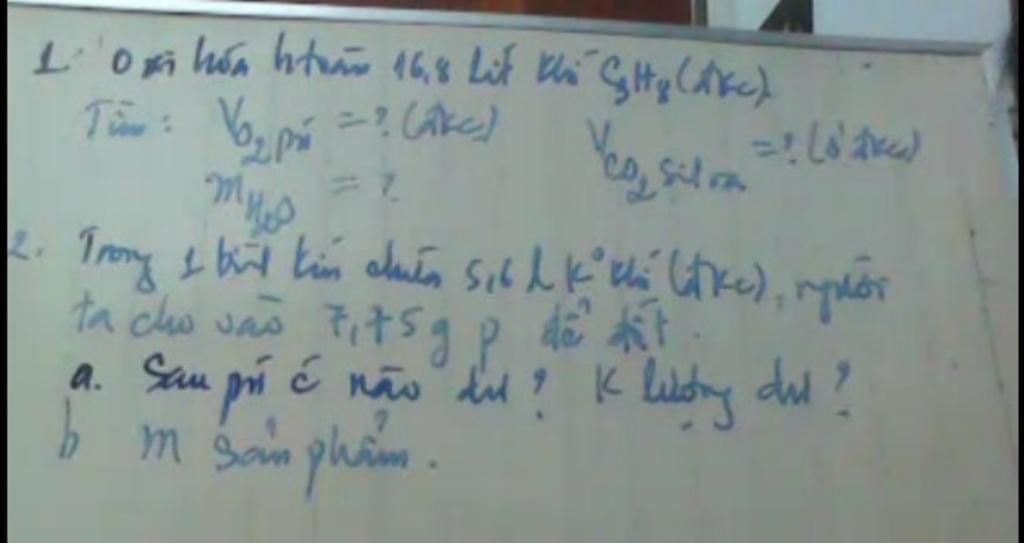 1. Oxi hóa htoàn 16,8 lít khí C3H8 (đkc).
Tìm: VO2 pứ = ? (đkc) VCO2 sinh ra = ? (ở đkc)
mH2O = ?
2. Trong 1 bình kín chứa 5,6 l K° khí (đkc), người
ta cho vào 7,75 g P để đốt.
a. Sau pứ c nào dư? K lượng dư?
b m sản phẩm.